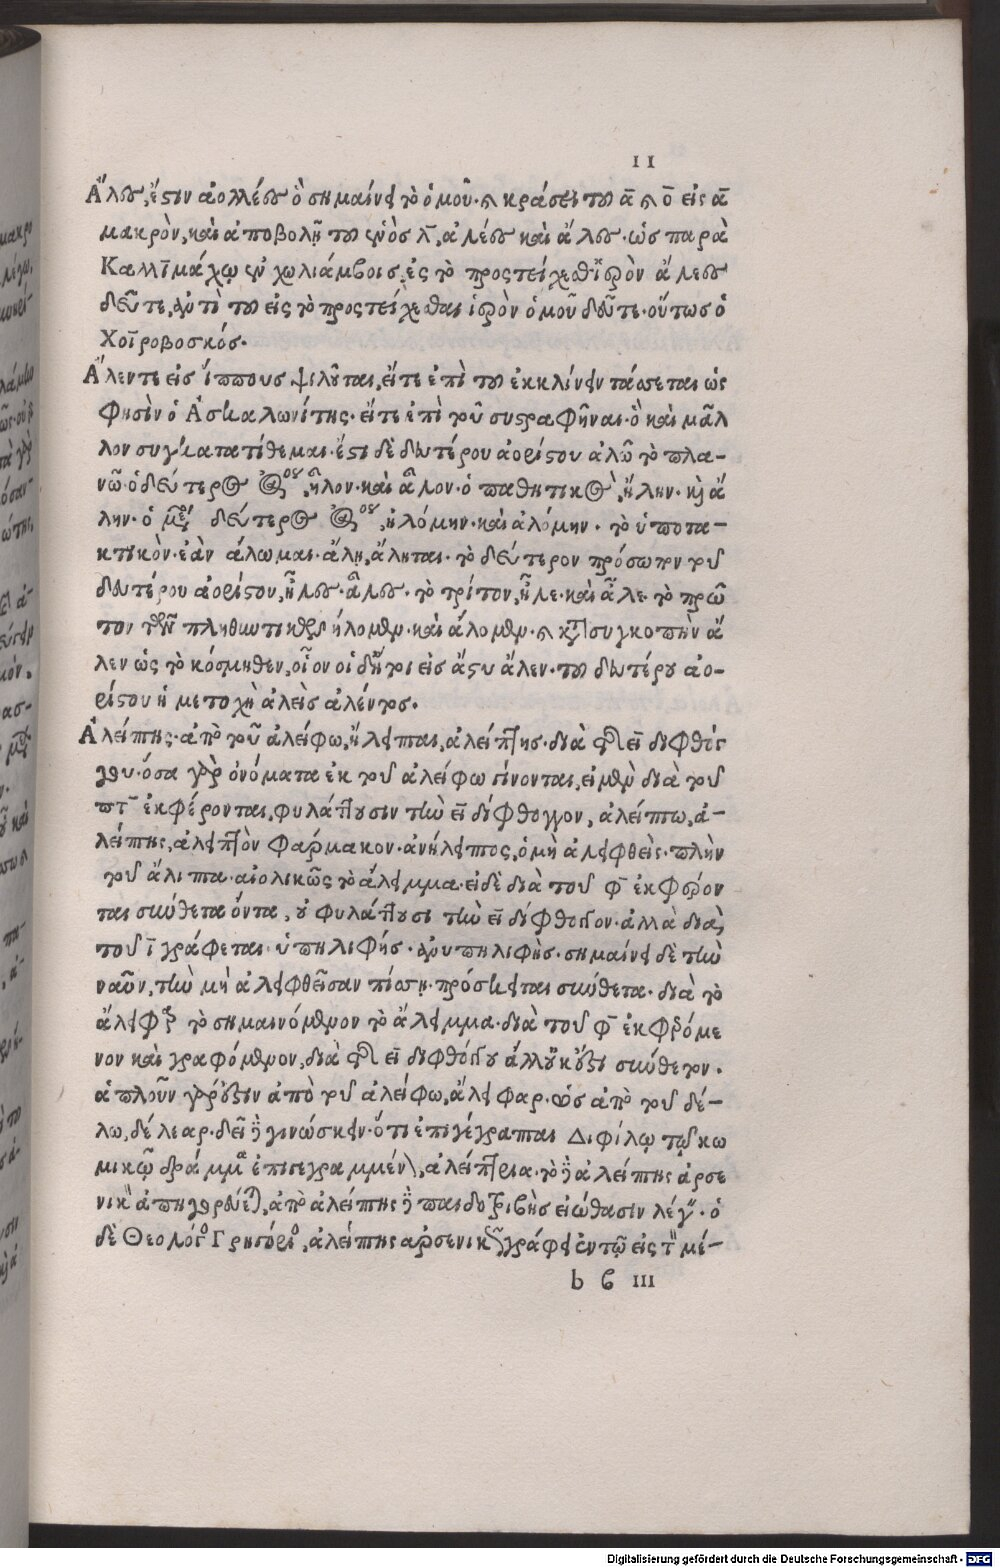 11
Ἄλεσ, ἔστιν ἀολλέεσ ὃ σημαίνει τὸ ὁμοῦ· καὶ κράσει τοῦ ᾱ καὶ ο̄ εἰς ᾱ
μακρὸν, καὶ ἀποβολῇ τοῦ ἑνὸς λ̄, ἀλέεσ καὶ ἄλεσ· ὡς παρὰ
Καλλϊμάχῳ ἐν χωλιάμβοις, ἐς τὸ πρὸ τείχεος ἱερὸν ἄλεσ
δεῦτε, ἀντὶ τοῦ εἰς τὸ πρὸ τείχεος ἱερὸν ὁμοῦ δεῦτε· οὕτως ὁ
Χοϊροβοσκός·
Ἄλεντε εἰς ἵππους ψιλοῦται, εἴτε ἐπὶ τοῦ ἐκκλίνειν τάσσεται ὡς
φησὶν ὁ Ἀσκαλωνίτης· εἴτε ἐπὶ τοῦ συστραφῆναι· ὃ καὶ μᾶλ
λον συγκατατίθεμαι· ἔστι δὲ δευτέρου ἀορίστου ἀλῶ τὸ πλα-
νῶ· ὁ δεύτερος ἀόριστος, ἧλον· καὶ ἆλον· ὁ παθητικὸς, ἥλην· καὶ ἄ
λην· ὁ μέσος δεύτερος ἀόριστος, ἡλόμην· καὶ ἁλόμην· τὸ ὑποτα-
κτικὸν· ἐὰν ἅλωμαι· ἅλῃ, ἅληται· τὸ δεύτερον πρόσωπον τοῦ
δευτέρου ἀορίστου, ἧλες· ἆλες· τὸ τρίτον, ἧλε· καὶ ἆλε· τὸ πρῶ
τον τῶν πληθυντικῶν ἥλομεν· καὶ ἅλομεν· καὶ κατὰ συγκοπὴν ἄ
λεν ὡς τὸ κόσμηθεν, οἷον οἱ δή τοι εἰς ἄστυ ἄλεν· τοῦ δευτέρου ἀο-
ρίστου ἡ μετοχὴ ἀλεὶς ἀλέντος·
Ἀλείπτης· ἀπὸ τοῦ ἀλείφω, ἤλειπται, ἀλείπτης· διὰ τῆς ει διφθόγ
γου· ὅσα γὰρ ὀνόματα ἐκ τοῦ ἀλείφω γίνονται, εἰ μὲν διὰ τοῦ
πτ̄ ἐκφέρονται, φυλάττουσιν τὴν ει δίφθογγον, ἀλείπτω, ἀ-
λείπτης, ἀλειπτὸν φάρμακον· ἀνήλειπτος, ὁ μὴ ἀλειφθεὶς· πλὴν
τοῦ ἄλιππα· αἰολικῶς τὸ ἄλειμμα· εἰ δὲ διὰ τοῦ φ̄ ἐκφέρον
ται σύνθετα ὄντα, οὐ φυλάττουσι τὴν ει δίφθογγον· ἀλλὰ διὰ
τοῦ ῑ γράφεται· ὑπηλιφής· νηυπηλιφὴς· σημαίνει δὲ τὴν
ναῦν, τὴν μὴ ἀλειφθεῖσαν πίσσῃ· πρόσκειται σύνθετα· διὰ τὸ
ἄλειφαρ τὸ σημαινόμενον τὸ ἄλειμμα· διὰ τοῦ φ̄ ἐκφερόμε
νον καὶ γραφόμενον, διὰ τῆς ει διφθόγγου ἀλλ' οὐκ ἔστι σύνθετον·
ἁπλοῦν γάρ ἐστιν ἀπὸ τοῦ ἀλείφω, ἄλειφαρ· ὡς ἀπὸ τοῦ δέ-
λω, δέλεαρ· δεῖ δὲ γινώσκειν· ὅτι ἐπιγέγραπται Διφίλῳ τῷ κω
μικῷ δράμμα ἐπιγεγραμμένον, ἀλείπτρια· τὸ δὲ ἀλείπτης ἀρσε
νικὸν ἀπηγόρευται, ἀπὸ ἀλείπτης δὲ παιδοτρίβης εἰώθασιν λέγειν· ὁ
δὲ Θεολόγος Γρηγόριος, ἀλείπτης ἀρσενικῶς γράφει ἐν τῷ εἰς τὸν μέ-
b β III
Digitalisierung gefördert durch die Deutsche Forschungsgemeinschaft - DFG